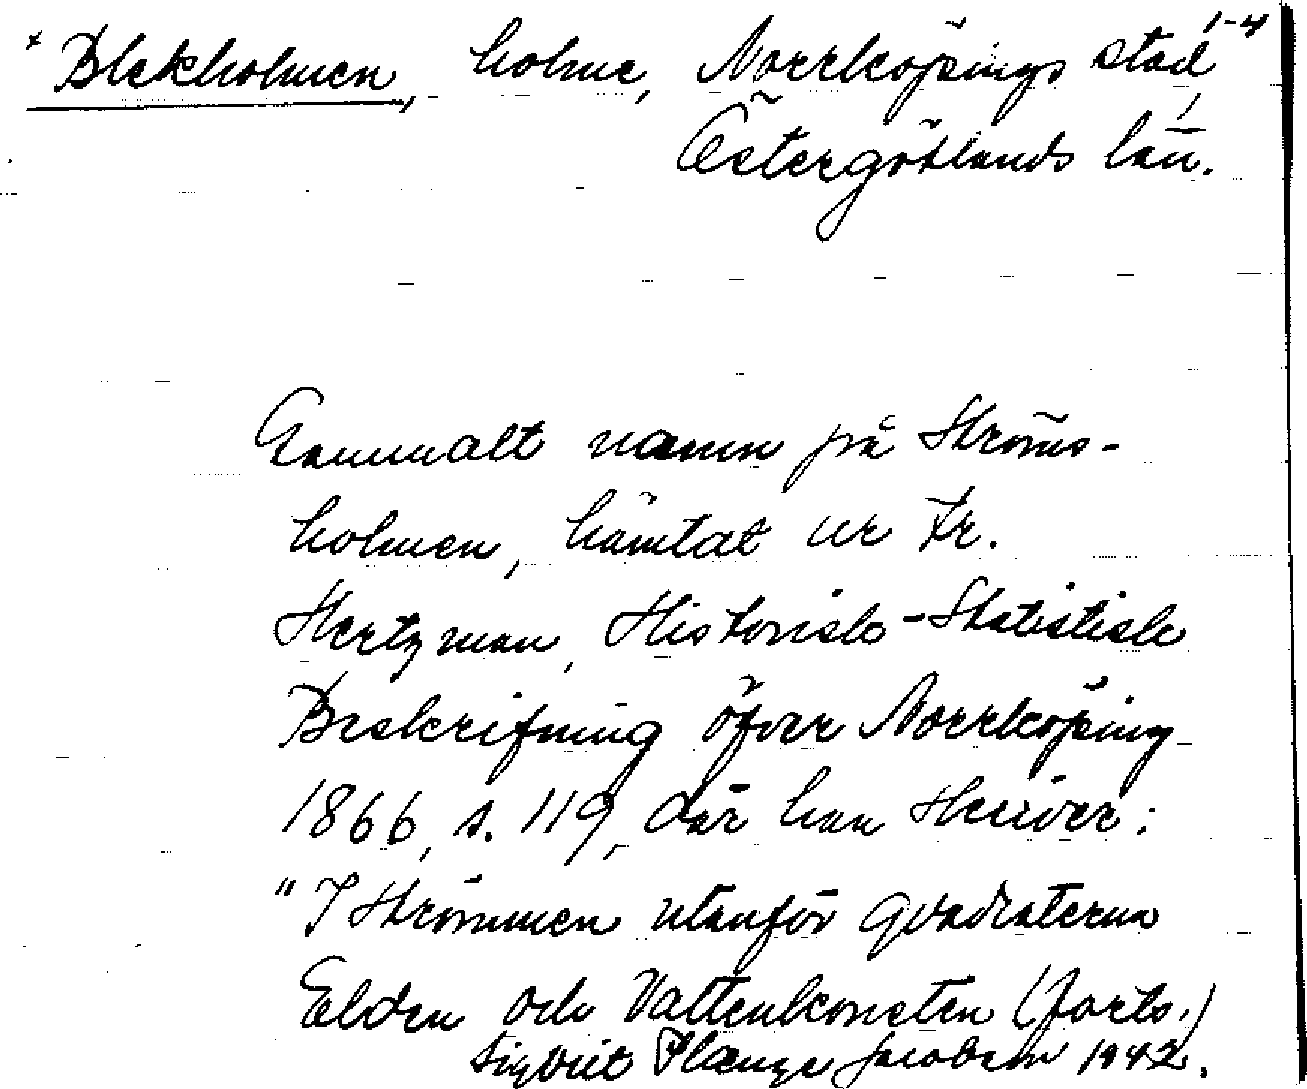 * Blekholmen, holme, Norrköpings stad, 1-4
Östergötlands län.
Gammalt namn på Ströms-
holmen, hämtat ur Fr.
Hertzman, Historisk-Statistisk
Beskrifning öfver Norrköping
1866, s. 119, där han skriver:
"I Strömmen utanför qvadraterna
Elden och Vattenkonsten (forts.)
Sigurit Plænge Jacobson 1942.